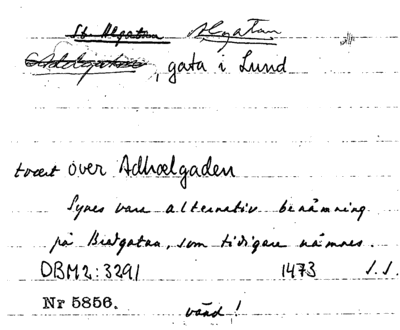 St. Algatan Algatan
Adelgatan, gata i Lund
tvært över Adhælgaden
Synes vara alternativ benämning
på Bredgatan, som tidigare nämnes.
DBM2:3291 1473 s.s.
Nr 5856.
vänd!